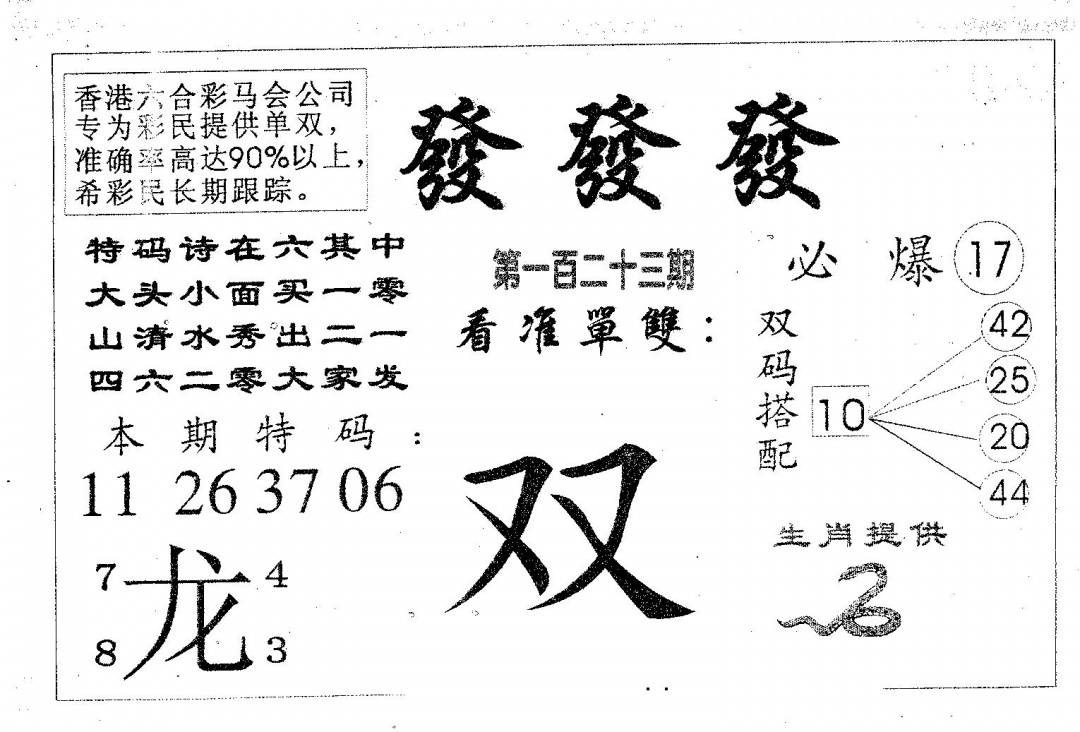 香港六合彩马会公司
专为彩民提供单双，
准确率高达90%以上，
希彩民长期跟踪。
發發發
特码诗在六其中
大头小面买一零
山清水秀出二一
四六二零大家发
第一百二十三期
看准單雙：
必爆 17
双码搭配
10
42
25
20
44
本期特码：
11 26 37 06
双
生肖提供
7 龙 4
8 3